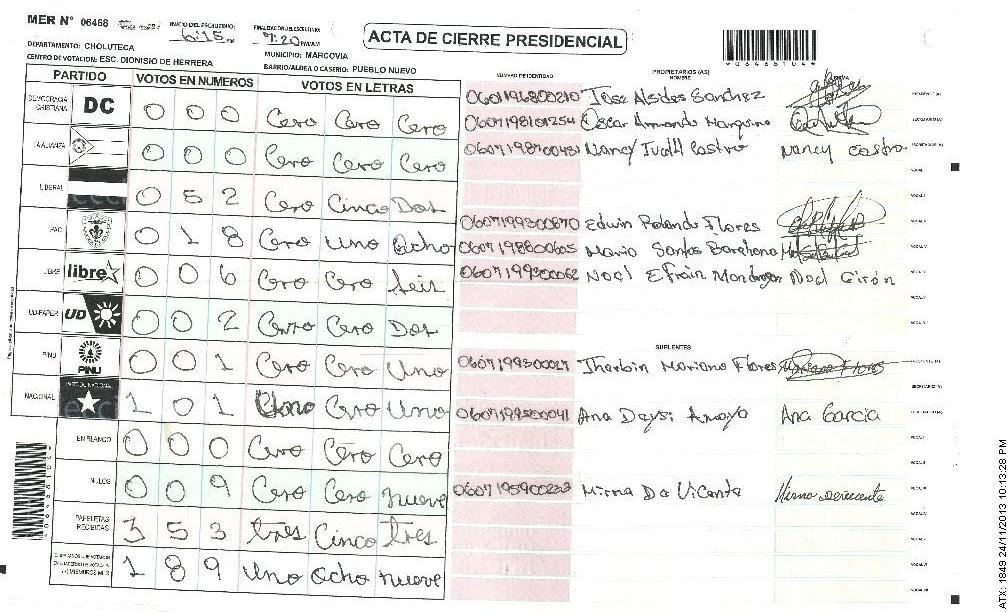 MER N° 06468 INICIO DEL ESCRUTINIO: 6:15 PM FINALIZACION DEL ESCRUTINIO: 7:20 PM/AM
ACTA DE CIERRE PRESIDENCIAL
DEPARTAMENTO: CHOLUTECA MUNICIPIO: MARCOVIA
CENTRO DE VOTACION: ESC. DIONISIO DE HERRERA BARRIO/ALDEA O CASERIO: PUEBLO NUEVO
PARTIDO VOTOS EN NUMEROS VOTOS EN LETRAS
NUMERO DE IDENTIDAD PROPIETARIOS (AS) NOMBRE
DEMOCRACIA CRISTIANA DC 0 0 0 Cero Cero Cero
LA ALIANZA 0 0 0 Cero Cero Cero
LIBERAL 0 5 2 Cero Cinco Dos
PAC 0 1 8 Cero Uno Ocho
LIBRE libre 0 0 6 Cero Cero Seis
UD-FAPER UD 0 0 2 Cero Cero Dos
PINU PINU 0 0 1 Cero Cero Uno
NACIONAL 1 0 1 Uno Cero Uno
EN BLANCO 0 0 0 Cero Cero Cero
NULOS 0 0 9 Cero Cero nueve
PAPELETAS RECIBIDAS 3 5 3 tres Cinco tres
1 8 9 Uno Ocho nueve
0601196800210 Jose Alsides Sanchez
0607198101254 Oscar Armando Marquina
Nancy Castro
0607199300870 Edwin Rolando Flores
0607198800605 Mario Santos Barahona
0607199300062 Noel Efrain Mondragon Noel Girón
SUPLENTES
Mariano Flores
Ana Deysi Amaya Ana Garcia
Mirna
ATX: 1849 24/11/2013 10:13:28 PM